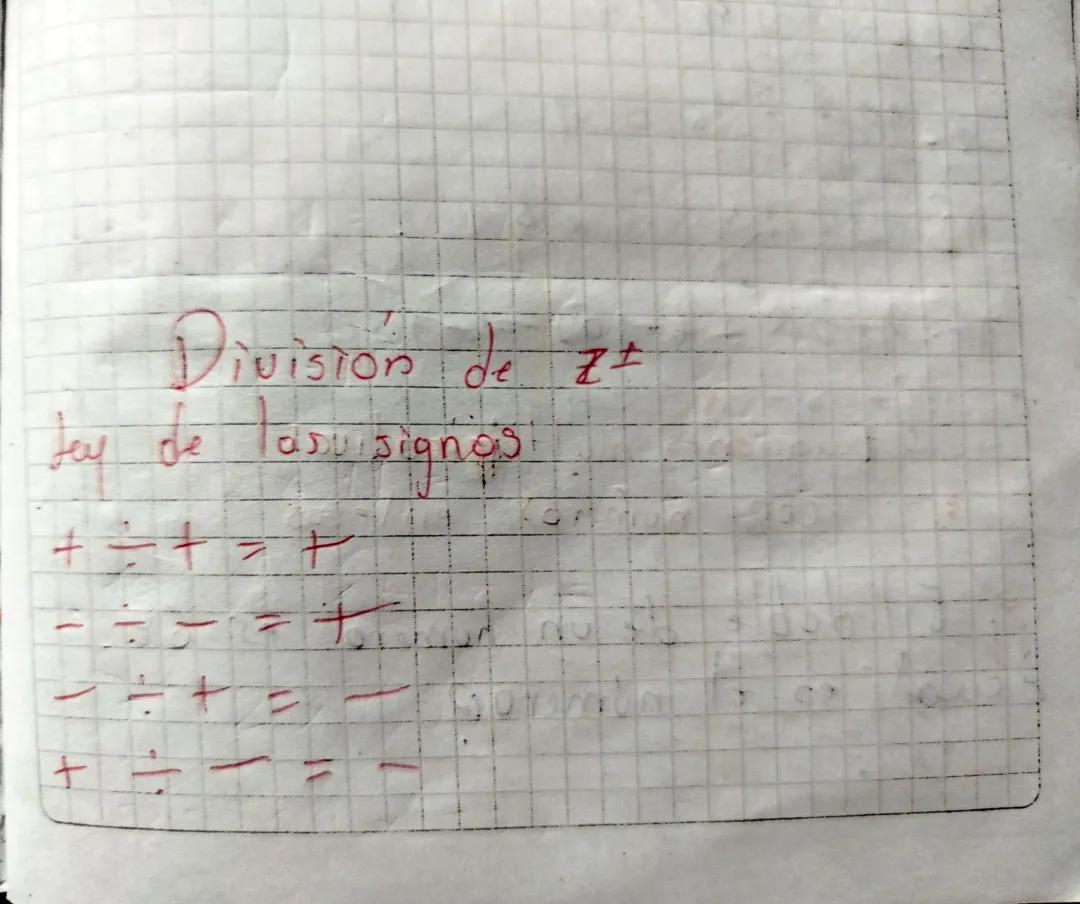 División de z±
ley de los signos
+ ÷ + = +
- ÷ - = +
- ÷ + = -
+ ÷ - = -